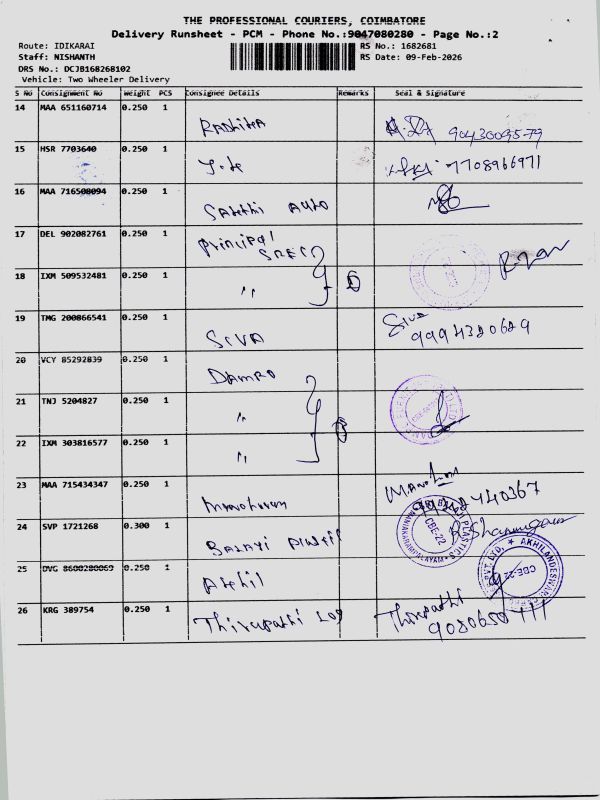 THE PROFESSIONAL COURIERS, COIMBATORE
Delivery Runsheet - PCM - Phone No.:9047080280 - Page No.:2
Route: IDIKARAI
RS No.: 1682681
Staff: NISHANTH
RS Date: 09-Feb-2026
DRS No.: DCJB1682681O2
Vehicle: Two Wheeler Delivery
S No Consignment No weight PCS Consignee Details Remarks Seal & Signature
14 MAA 651160714 0.250 1
15 HSR 7703640 0.250 1 7708966971
16 MAA 716508094 0.250 1 Sakthi Auto
17 DEL 902082761 0.250 1 Principal
18 IXM 509532481 0.250 1 "
19 TMG 200866541 0.250 1 SIVA Siva 9994320629
20 VCY 85292839 0.250 1
21 TNJ 5204827 0.250 1 "
22 IXM 303816577 0.250 1 "
23 MAA 715434347 0.250 1 Manoharan
24 SVP 1721268 0.300 1 Balaji
25 DVG 8600280069 0.250 1 Akhil
26 KRG 389754 0.250 1 Thirupathi Log Thirupathi